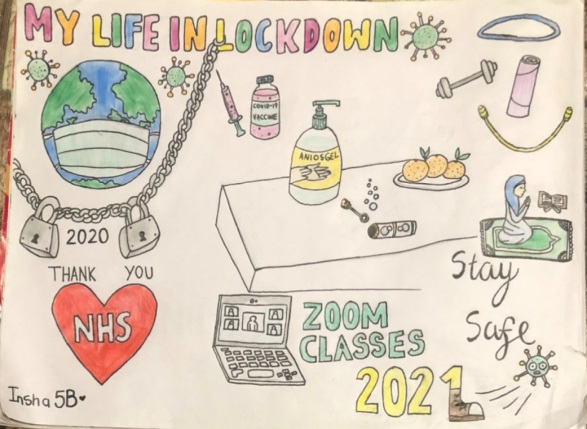 MY LIFE IN LOCKDOWN
COVID-19
VACCINE
ANIOSGEL
2020
THANK YOU
NHS
Stay
Safe
ZOOM
CLASSES
2021
Insha 5B